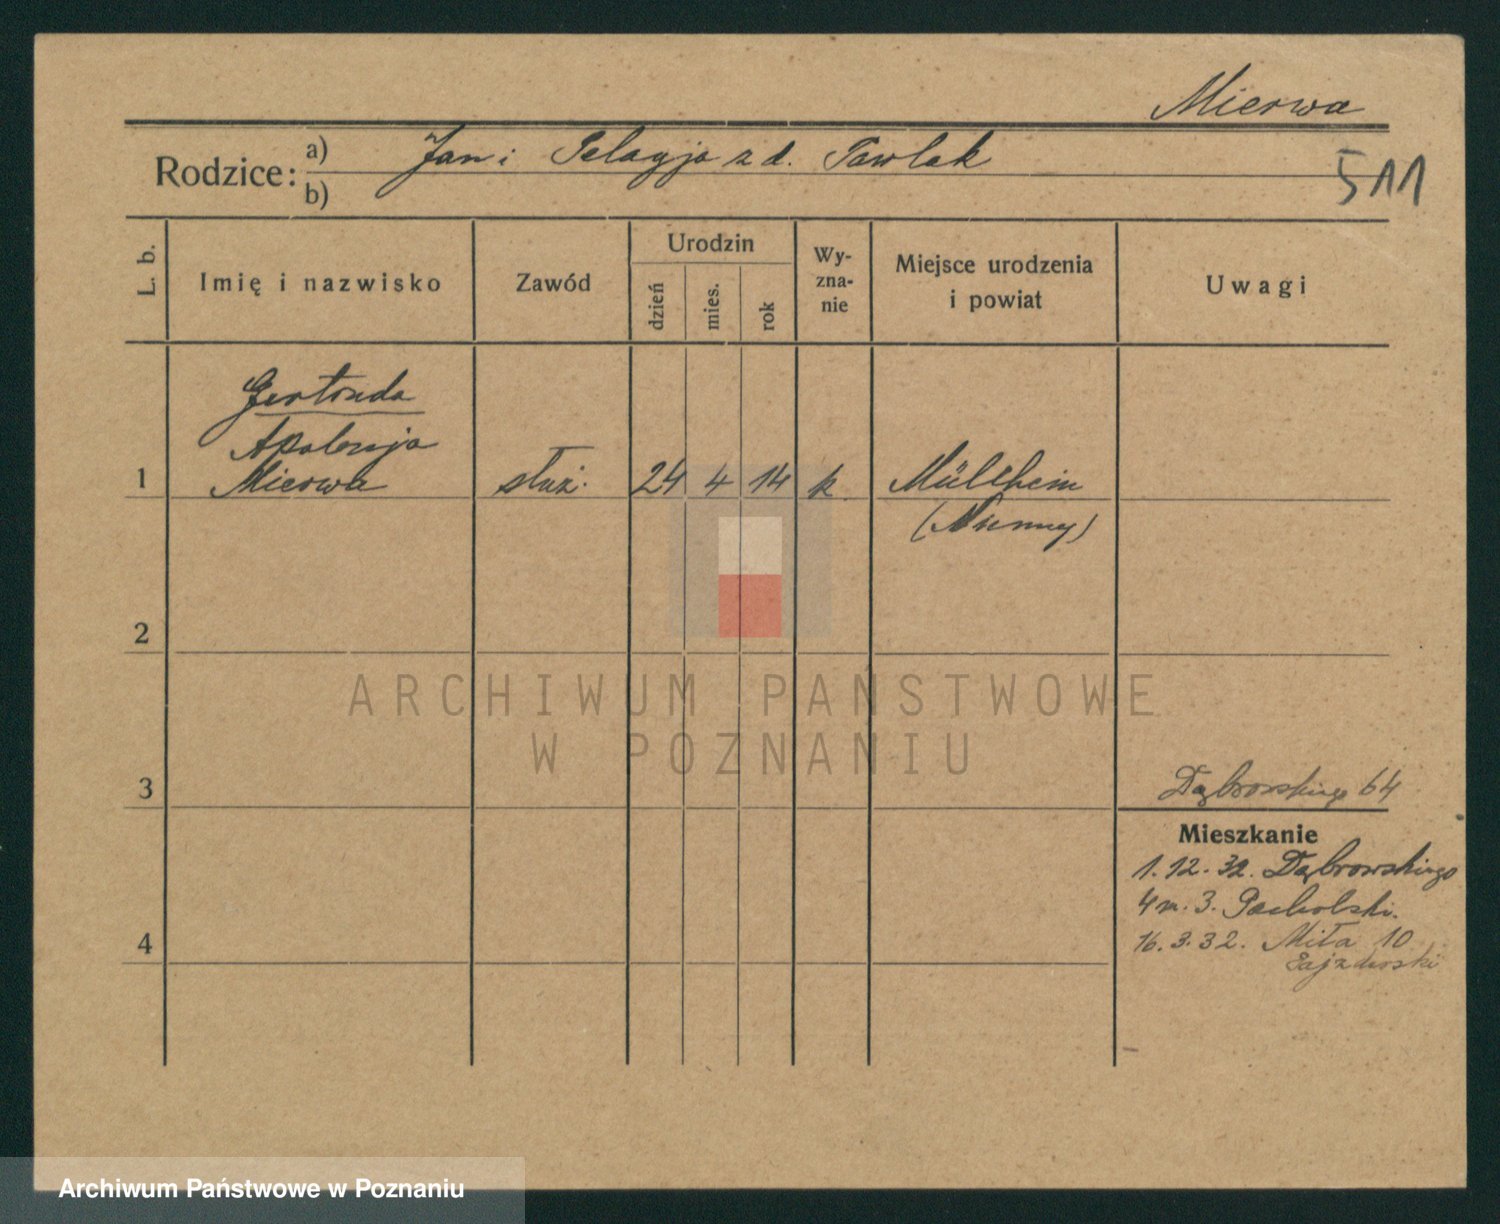 Mierwa
Rodzice: a) Jan i Pelagja z d. Pawlak
b)
511
L. b.
Imię i nazwisko
Zawód
Urodzin
dzień
mies.
rok
Wy-
zna-
nie
Miejsce urodzenia
i powiat
Uwagi
Gertruda
Apolonja
1 Mierwa służ. 24 4 14 k. Mülheim
(Niemcy)
2
ARCHIWUM PAŃSTWOWE
W POZNANIU
3
Dąbrowskiego 64
Mieszkanie
1.12.32. Dąbrowskiego
4 m. 3. Pacholski.
4
16.3.32. Miła 10
Archiwum Państwowe w Poznaniu